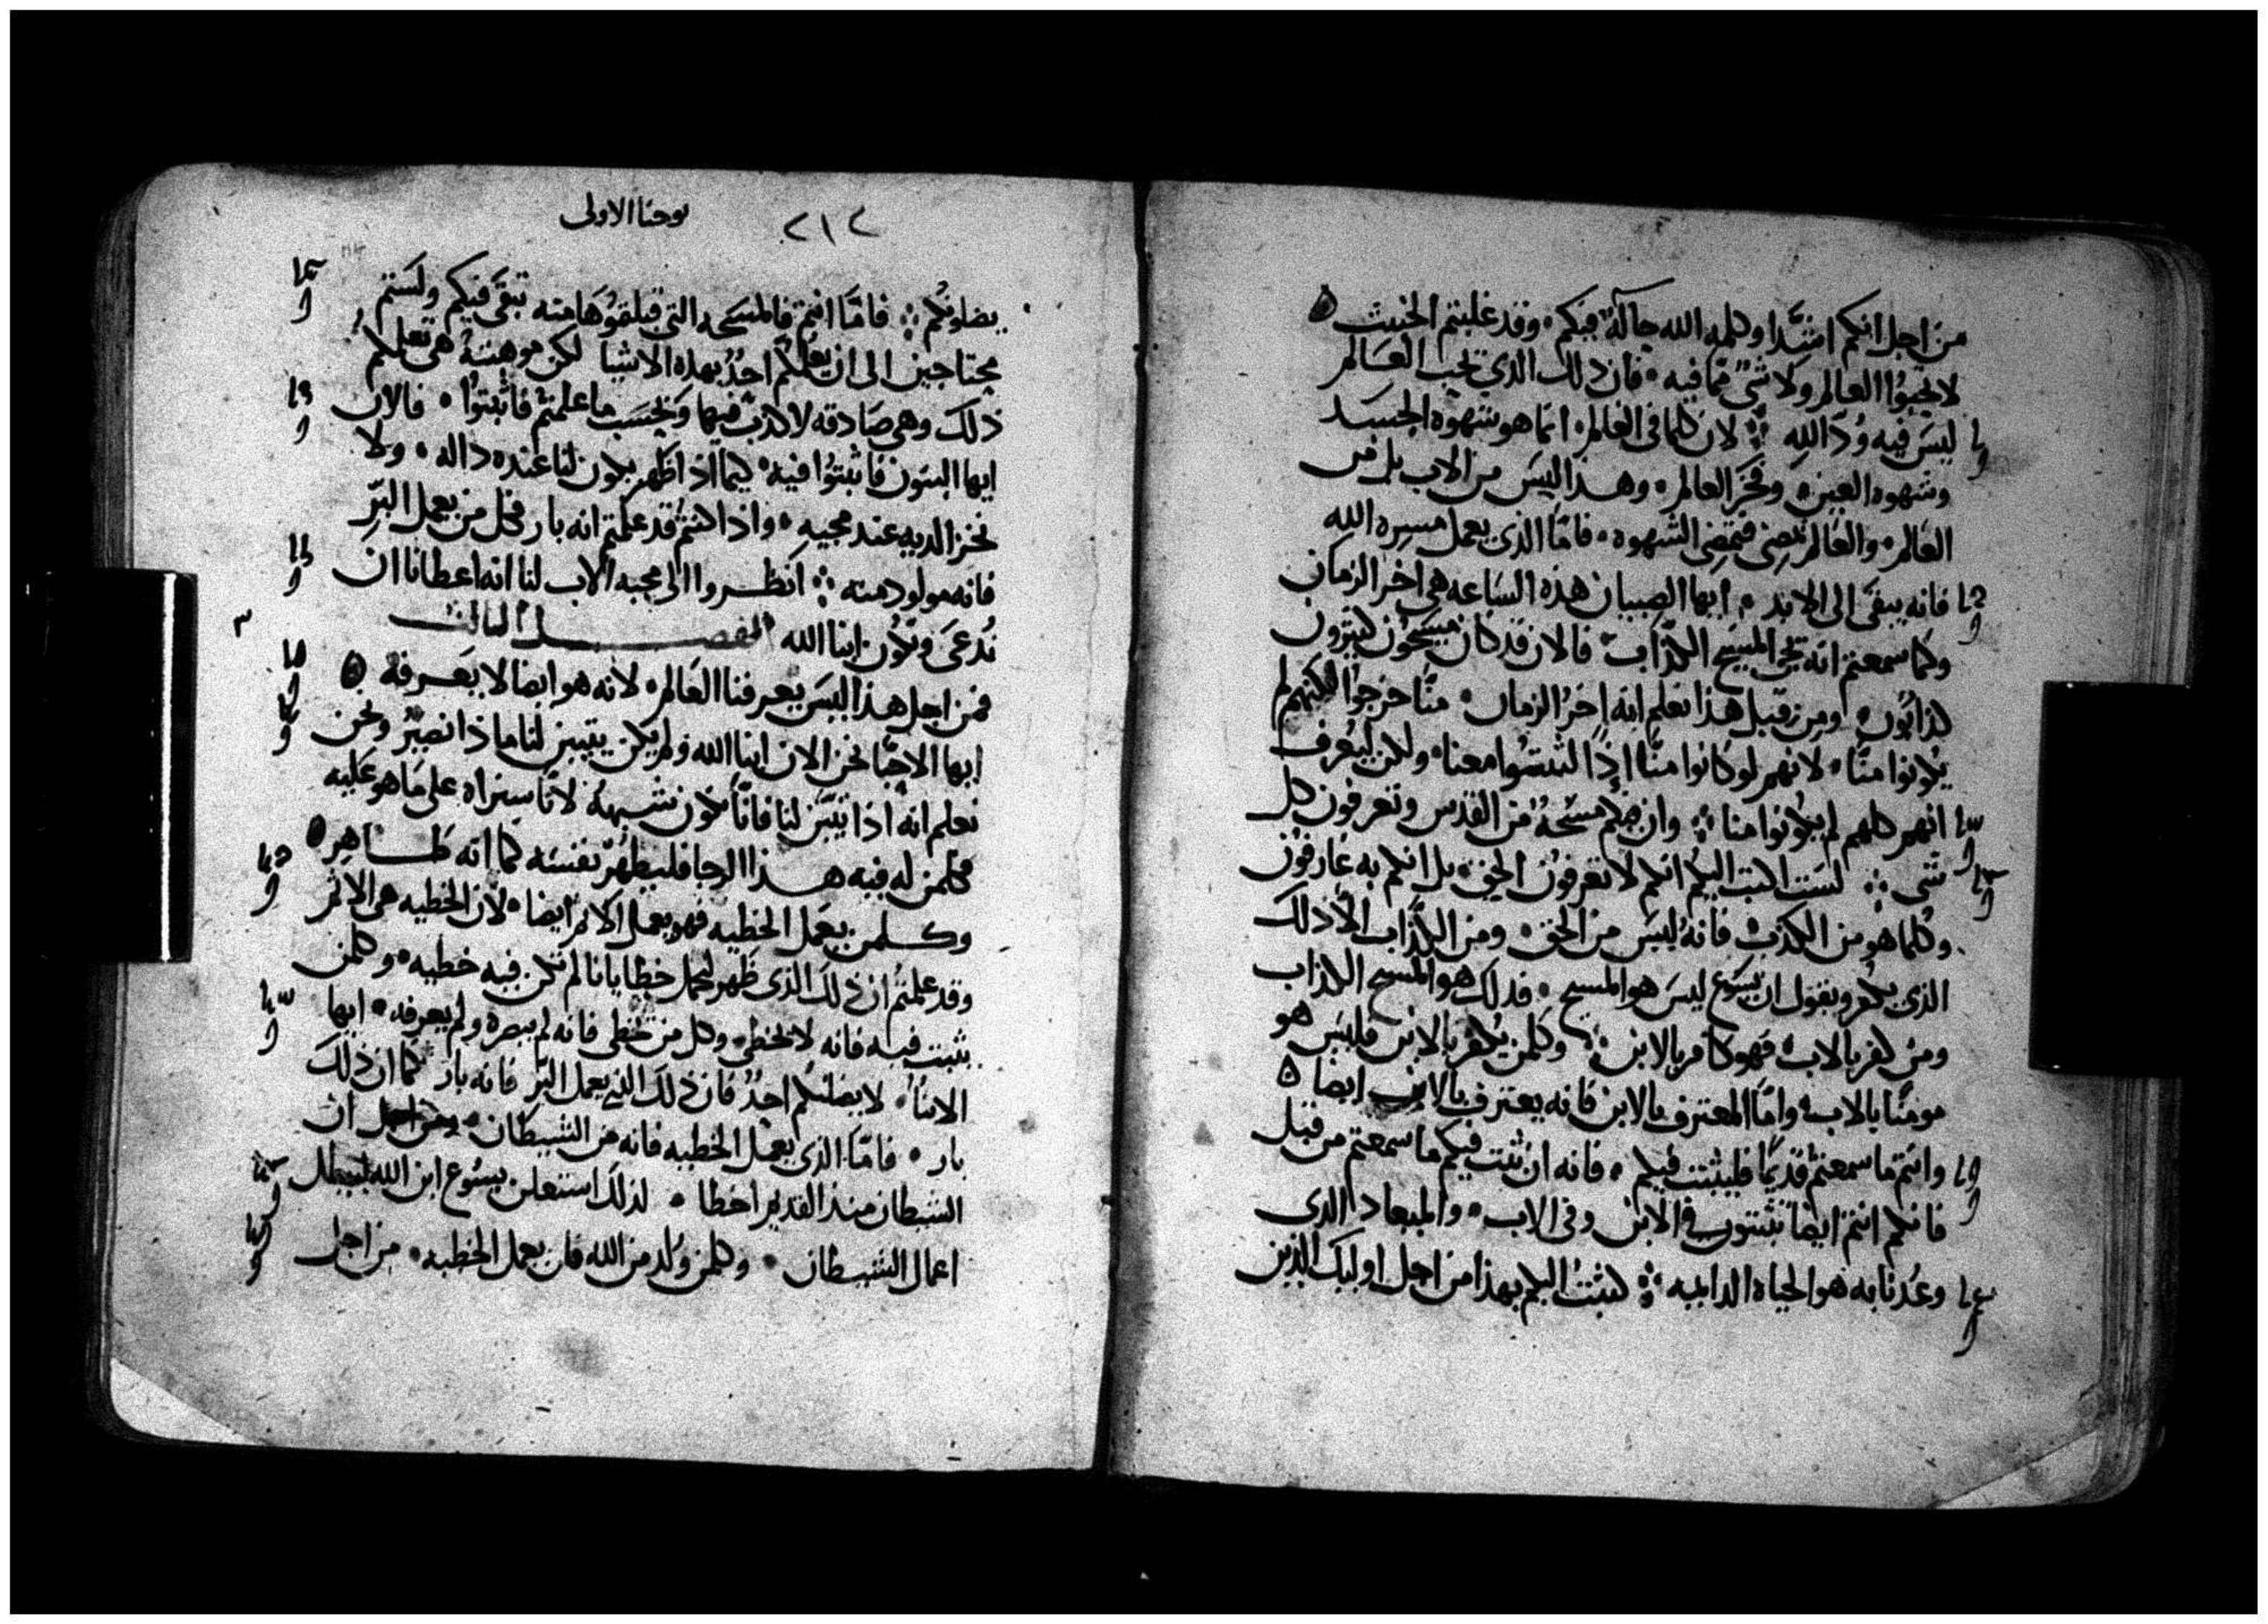 من اجل انكم اشدا وكلمة الله حاله فيكم وقد غلبتم الخبيث
لا تحبوا العالم ولا شي مما فيه فان ذلك الذي يحب العالم
ليس فيه ود الله لان كلما في العالم انما هو شهوه الجسد
وشهوه العين وفخر العالم وهذا ليس من الاب بل من
العالم والعالم تمضي فتمضي الشهوه فاما الذي يعمل مسره الله
فانه يبقى الى الابد ايها الصبيان هذه الساعه هي اخر الزمان
وكما سمعتم انه يجي المسيح الكذاب فالان قد كان مسيحون كثيرون
كذابون ومن قبل هذا نعلم انه اخر الزمان منا خرجوا لكنهم لم
يكونوا منا لانهم لو كانوا منا اذا لثبتوا معنا ولكن ليعرف
انهم كلهم لم يكونوا منا وان فيكم مسحه من القدس وتعرفون كل
شي لست اكتب اليكم انكم لا تعرفون الحق بل انكم به عارفون
وكلما هو من الكذب فانه ليس من الحق ومن الكذاب الا ذلك
الذي يكفر ويقول ان يسوع ليس هو المسيح فذلك هو المسيح الكذاب
ومن كفر بالاب فهو كافر بالابن وكلمن يكفر بالابن فليس هو
مومنا بالاب واما المعترف بالابن فانه يعترف بالاب ايضا
وانتم ما سمعتم قديما فليثبت فيكم فانه ان ثبت فيكم ما سمعتم من قبل
فانكم انتم ايضا تثبتون في الابن وفي الاب والميعاد الذي
وعدنا به هو الحياه الدايمه كتبت اليكم بهذا من اجل اوليك الذين
٢١٢ يوحنا الاولى
يضلونكم فاما انتم فالمسحه التي قبلتموها منه تبقى فيكم ولستم
محتاجين الى ان يعلمكم احد بهذه الاشيا لكن موهبته هي تعلمكم
ذلك وهي صادقه لا كذب فيها وبحسب ما علمتم فاثبتوا فالان
ايها البنون فاثبتوا فيه كيما اذا ظهر يكون لنا عنده داله ولا
نخز لديه عند مجيه واذا كنتم قد علمتم انه بار فكل من يعمل البر
فانه مولود منه انظروا الى محبه الاب لنا انه اعطانا ان
ندعى ونكون ابنا الله الفصل الثالث
فمن اجل هذا ليس يعرفنا العالم لانه هو ايضا لا يعرفه
ايها الاحبا نحن الان ابنا الله ولم يكن يتبين لنا ماذا نصير ونحن
نعلم انه اذا تبين لنا فانا نكون شبهه لانا سنراه على ما هو عليه
فكلمن له فيه هذا الرجا فليطهر نفسه كما انه طاهر
وكلمن يعمل الخطيه فهو يعمل الاثم ايضا لان الخطيه هي الاثم
وقد علمتم ان ذلك الذي ظهر ليحمل خطايانا لم تكن فيه خطيه وكلمن
يثبت فيه فانه لا يخطي وكل من يخطي فانه لم يبصره ولم يعرفه ايها
الابنا لا يضلنكم احد فان ذلك الذي يعمل البر فانه بار كما ان ذلك
بار فاما الذي يعمل الخطيه فانه من الشيطان ومن اجل ان
الشيطان منذ القديم اخطا لذلك استعلن يسوع ابن الله ليبطل
اعمال الشيطان وكلمن ولد من الله فان يعمل الخطيه من اجل